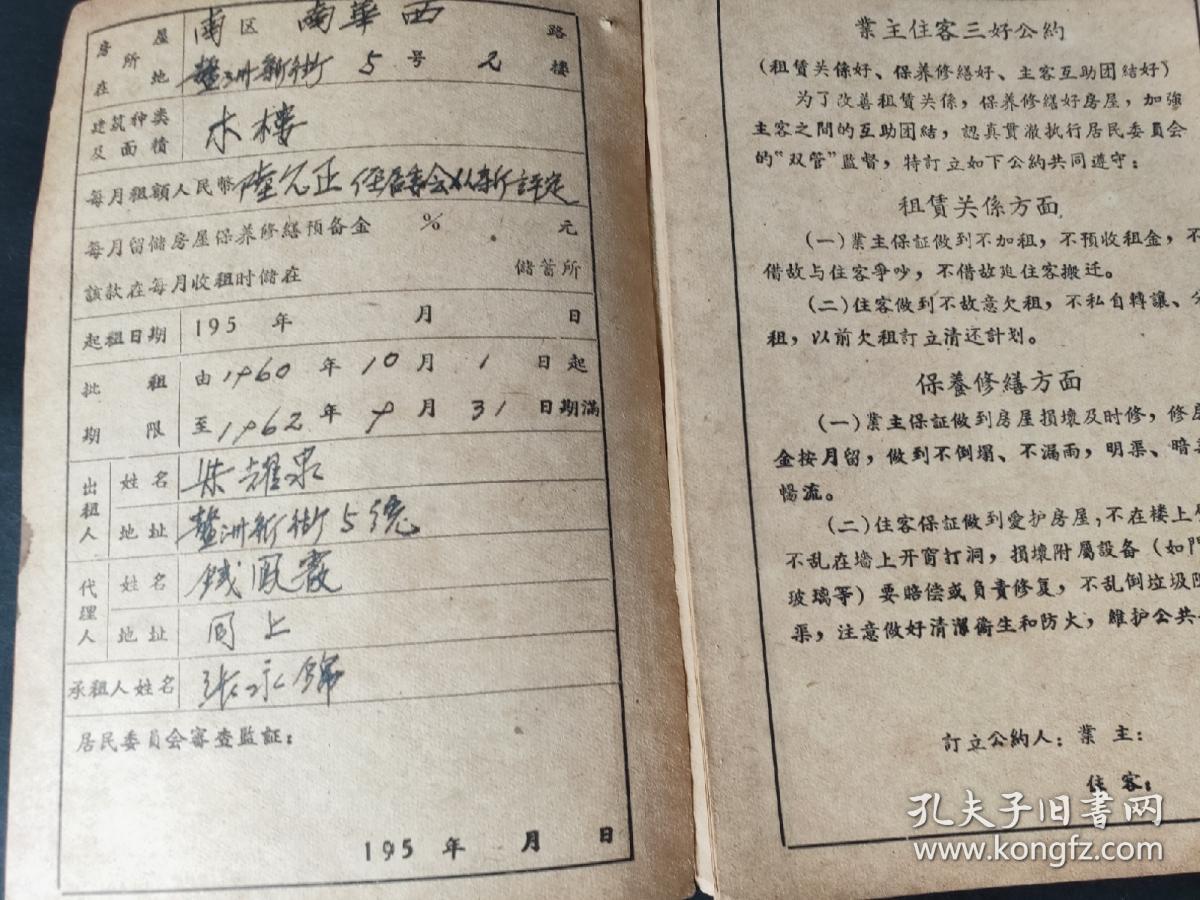 房屋所在地 南区 南華西 路
鳌洲新街 5 号 2 楼
建筑种类及面積 木樓
每月租額人民幣 陸元正 任居委会从新評定
每月留儲房屋保养修繕預备金 % 元
該款在每月收租时儲在 儲蓄所
起租日期 195 年 月 日
批租期限 由1960年10月1日起
至1962年9月31日期滿
出租人 姓名 梁耀泉
地址 鳌洲新街5号
代理人 姓名 鳳霞
地址 同上
承租人姓名 张永錦
居民委員会審查监証：
195 年 月 日
業主住客三好公約
（租賃关係好、保养修繕好、主客互助团結好）
为了改善租賃关係，保养修繕好房屋，加強
主客之間的互助团結，認真貫澈执行居民委員会
的“双管”监督，特訂立如下公約共同遵守：
租賃关係方面
（一）業主保証做到不加租，不預收租金，不
借故与住客爭吵，不借故迫住客搬迁。
（二）住客做到不故意欠租，不私自轉讓、分
租，以前欠租訂立清还計划。
保養修繕方面
（一）業主保証做到房屋損壞及时修，修房
金按月留，做到不倒塌、不漏雨，明渠、暗渠
暢流。
（二）住客保証做到爱护房屋，不在楼上
不乱在墻上开窗打洞，損壞附屬設备（如門
玻璃等）要賠偿或負責修复，不乱倒垃圾
渠，注意做好清潔衞生和防火，維护公共
訂立公約人：業 主：
住 客：
孔夫子旧書网
www.kongfz.com